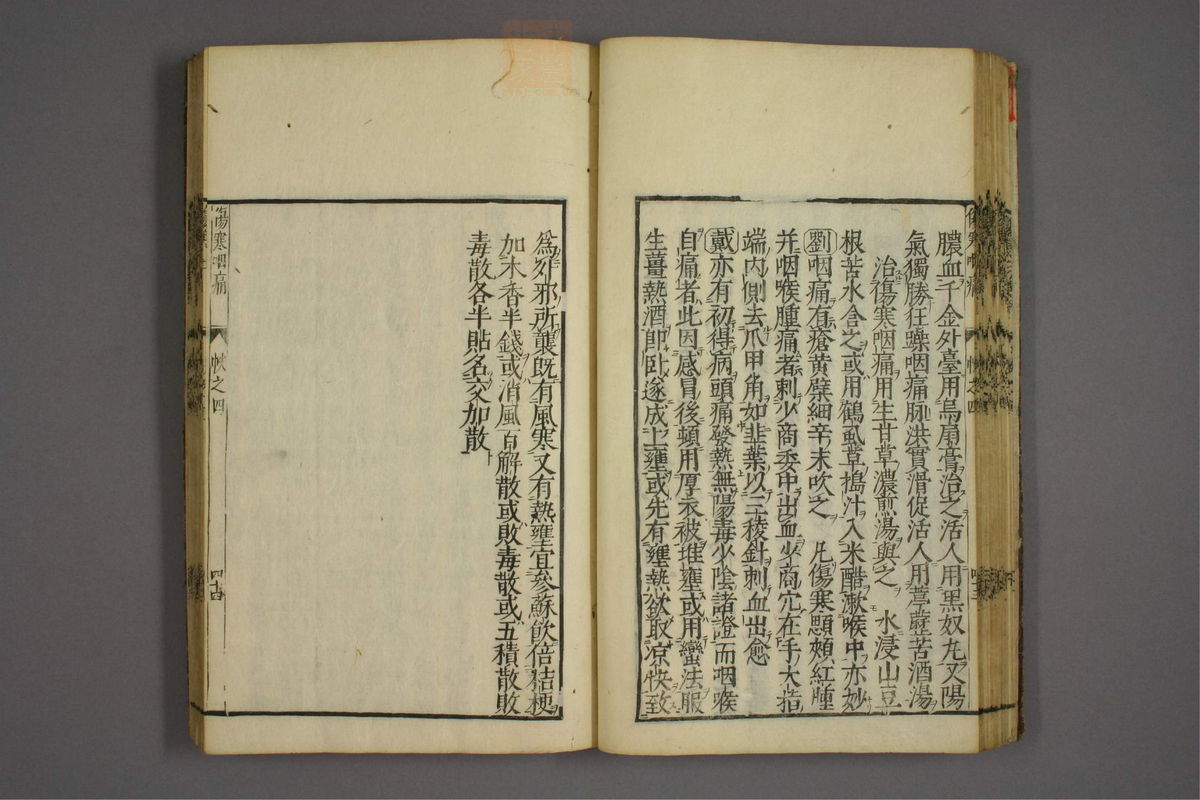 膿血千金外臺用烏扇膏治之活人用黑奴丸又陽
氣獨勝狂躁咽痛脉洪實滑促活人用葶藶苦酒湯
治傷寒咽痛用生甘草濃煎湯與之 水浸山豆
根苦水含之或用鶴虱草搗汁入米醋漱喉中亦妙
劉咽痛有瘡黃蘗細辛末吹之 凡傷寒顋頰紅腫
并咽喉腫痛者刺少商委中出血少商穴在手大指
端內側去爪甲角如韭葉以三稜針刺血出愈
戴亦有初得病頭痛發熱無陽毒少陰諸證而咽喉
自痛者此因感冒後頓用厚衣被堆壅或用蠻法服
生薑熱酒即臥遂成上壅或先有壅熱欲取凉快致
傷寒咽痛
帙之四
四十四
為外邪所襲既有風寒又有熱壅宜參蘇飲倍桔梗
加木香半錢或消風百解散或敗毒散或五積散敗
毒散各半貼名交加散